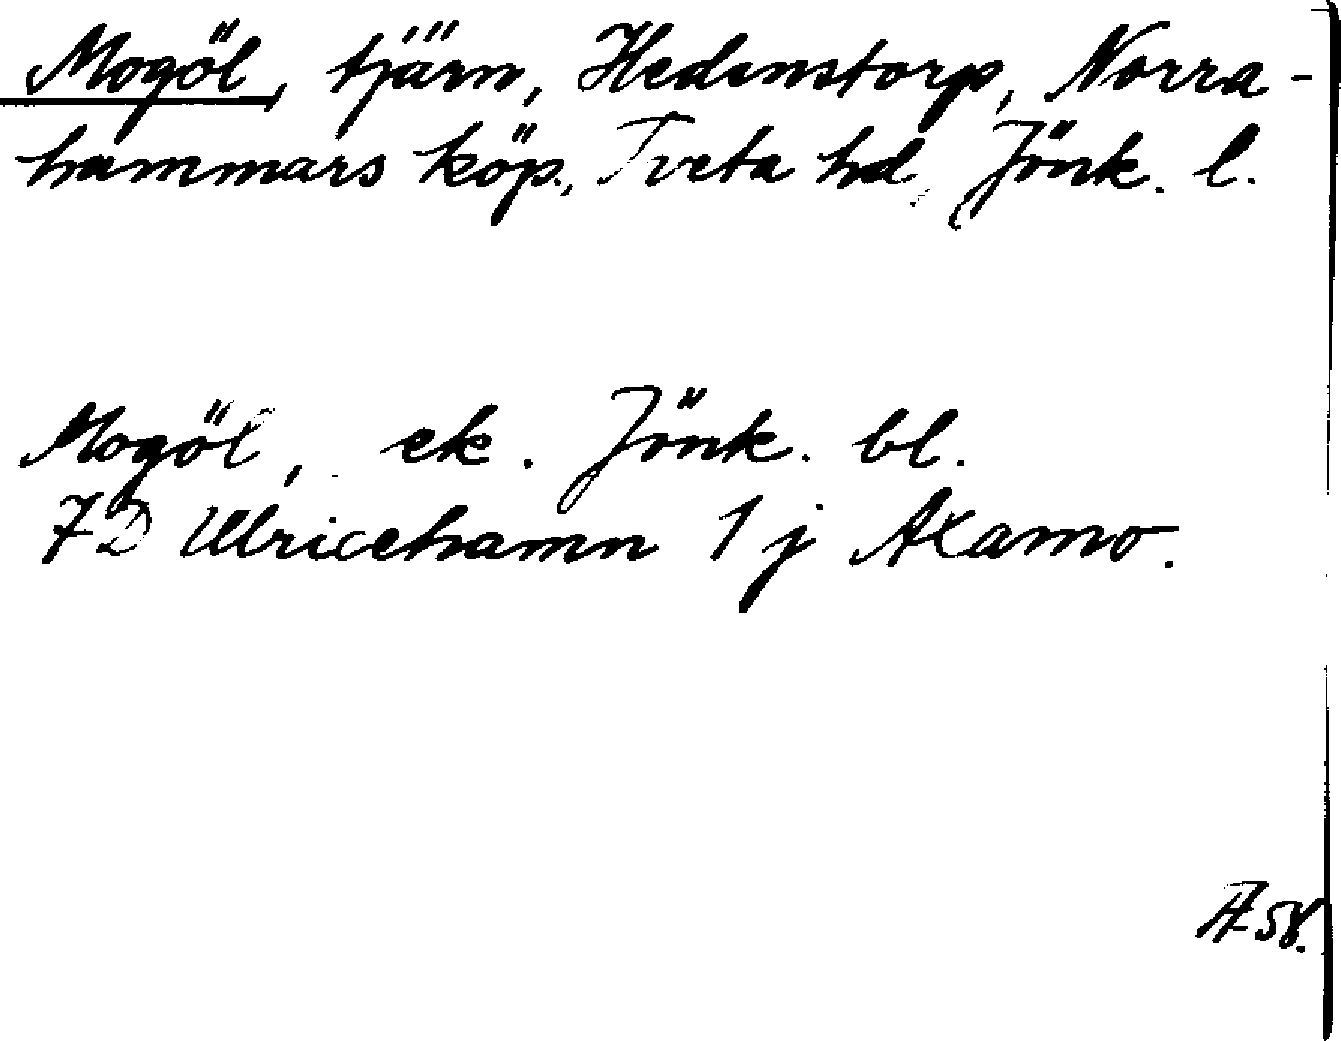 Mogöl, tjärn, Hedenstorp, Norra-
hammars köp., Tveta hd, Jönk. l.
Mogöl, ek. Jönk. bl.
7D Ulricehamn 1 j Axamo.
58.